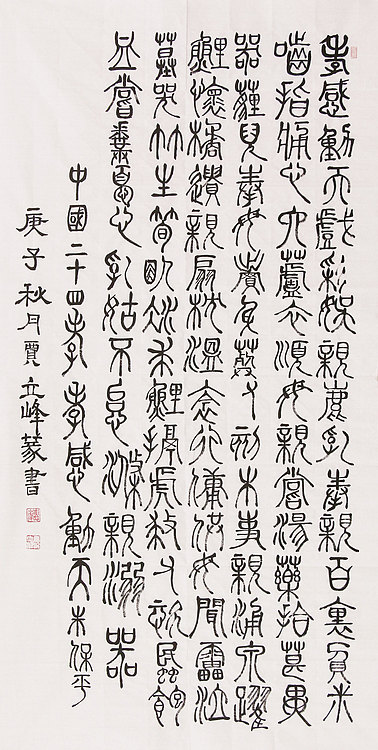 孝感動天戲彩娛親鹿乳奉親百里負米
嚙指痛心蘆衣順母親嘗湯藥拾葚異
器薶兒奉母賣身葬父刻木事親涌泉躍
鯉懷橘遺親扇枕溫衾行傭供母聞雷泣
墓哭竹生筍臥冰求鯉搤虎救父恣蟁飽
血嘗糞憂心乳姑不怠滌親溺器
中國二十四孝孝感動天朱保平
庚子秋月賈立峰篆書